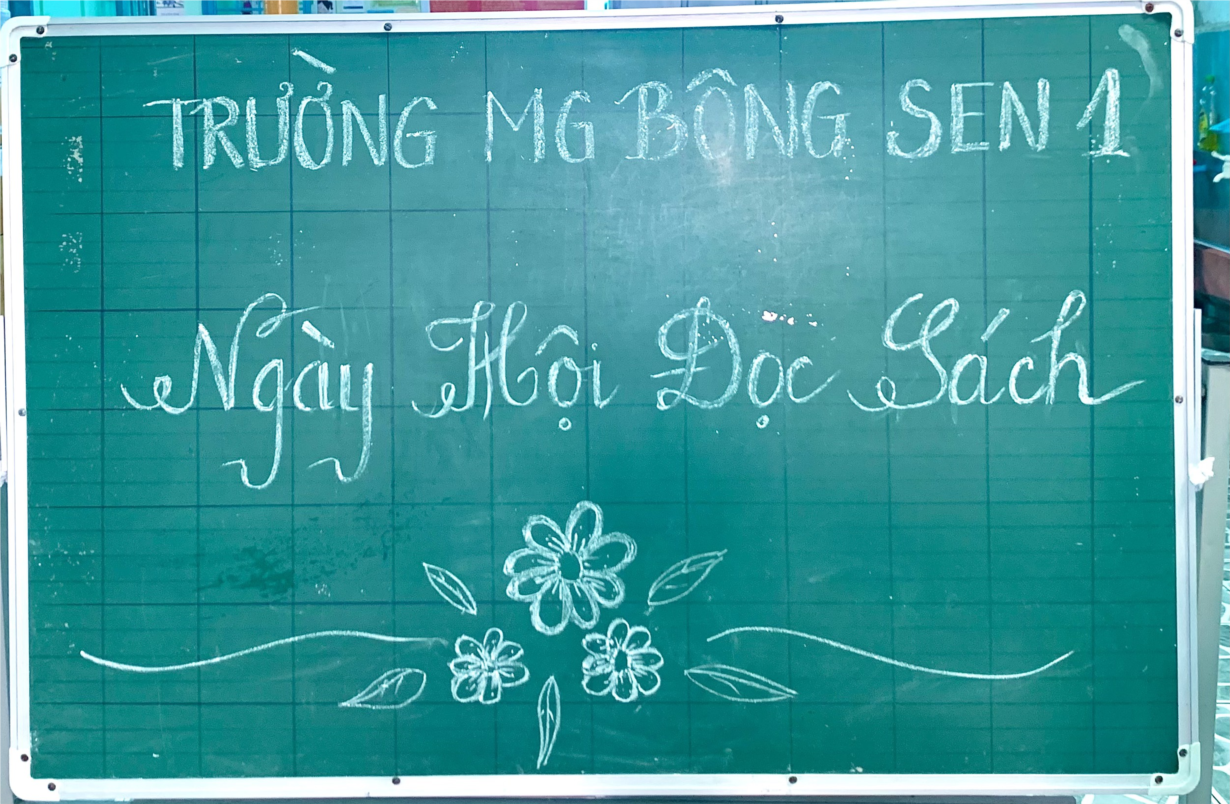 TRƯỜNG MG BÔNG SEN 1
Ngày Hội Đọc Sách